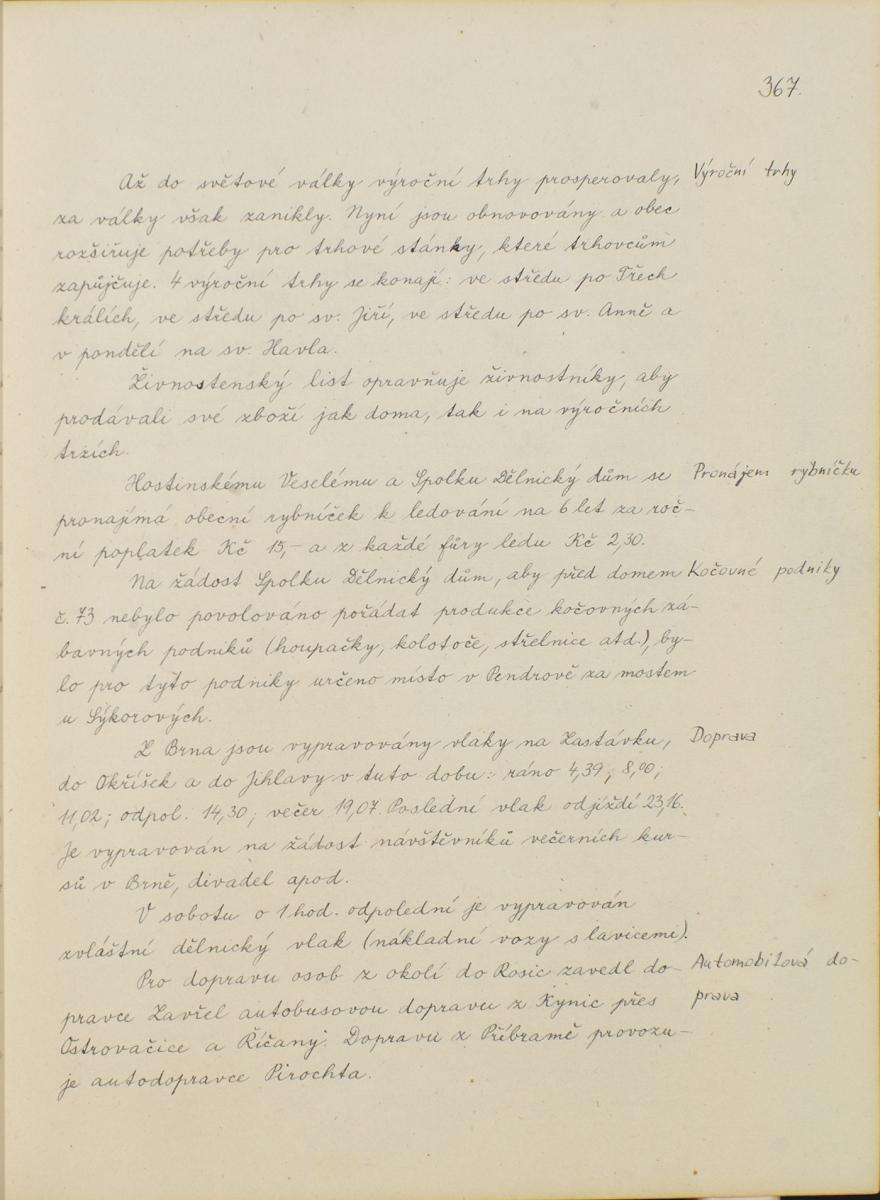 367.
Až do světové války výroční trhy prosperovaly, Výroční trhy
za války však zanikly. Nyní jsou obnovovány a obec
rozšiřuje potřeby pro trhové stánky, které trhovcům
zapůjčuje. 4 výroční trhy se konají: ve středu po Třech
králích, ve středu po sv. Jiří, ve středu po sv. Anně a
v pondělí na sv. Havla.
Živnostenský list opravňuje živnostníky, aby
prodávali své zboží jak doma, tak i na výročních
trzích.
Hostinskému Veselému a Spolku Dělnický dům se Pronájem rybníčku
pronajímá obecní rybníček k ledování na 6 let za roč-
ní poplatek Kč 15,- a z každé fůry ledu Kč 2,30.
Na žádost Spolku Dělnický dům, aby před domem Kočovné podniky
č. 73 nebylo povolováno pořádat produkce kočovných zá-
bavných podniků (houpačky, kolotoče, střelnice atd.), by-
lo pro tyto podniky určeno místo v Pendrově za mostem
u Sýkorových.
Z Brna jsou vypravovány vlaky na Zastávku, Doprava
do Okříšek a do Jihlavy v tuto dobu: ráno 4,39; 8,00;
11,02; odpol. 14,30; večer 19,07. Poslední vlak odjíždí 23,16.
Je vypravován na žádost návštěvníků večerních kur-
sů v Brně, divadel apod.
V sobotu o 1 hod. odpolední je vypravován
zvláštní dělnický vlak (nákladní vozy s lavicemi).
Pro dopravu osob z okolí do Rosic zavedl do- Automobilová do-
pravce Zavřel autobusovou dopravu z Kynic přes prava
Ostrovačice a Říčany. Dopravu z Příbramě provozu-
je autodopravce Pirochta.